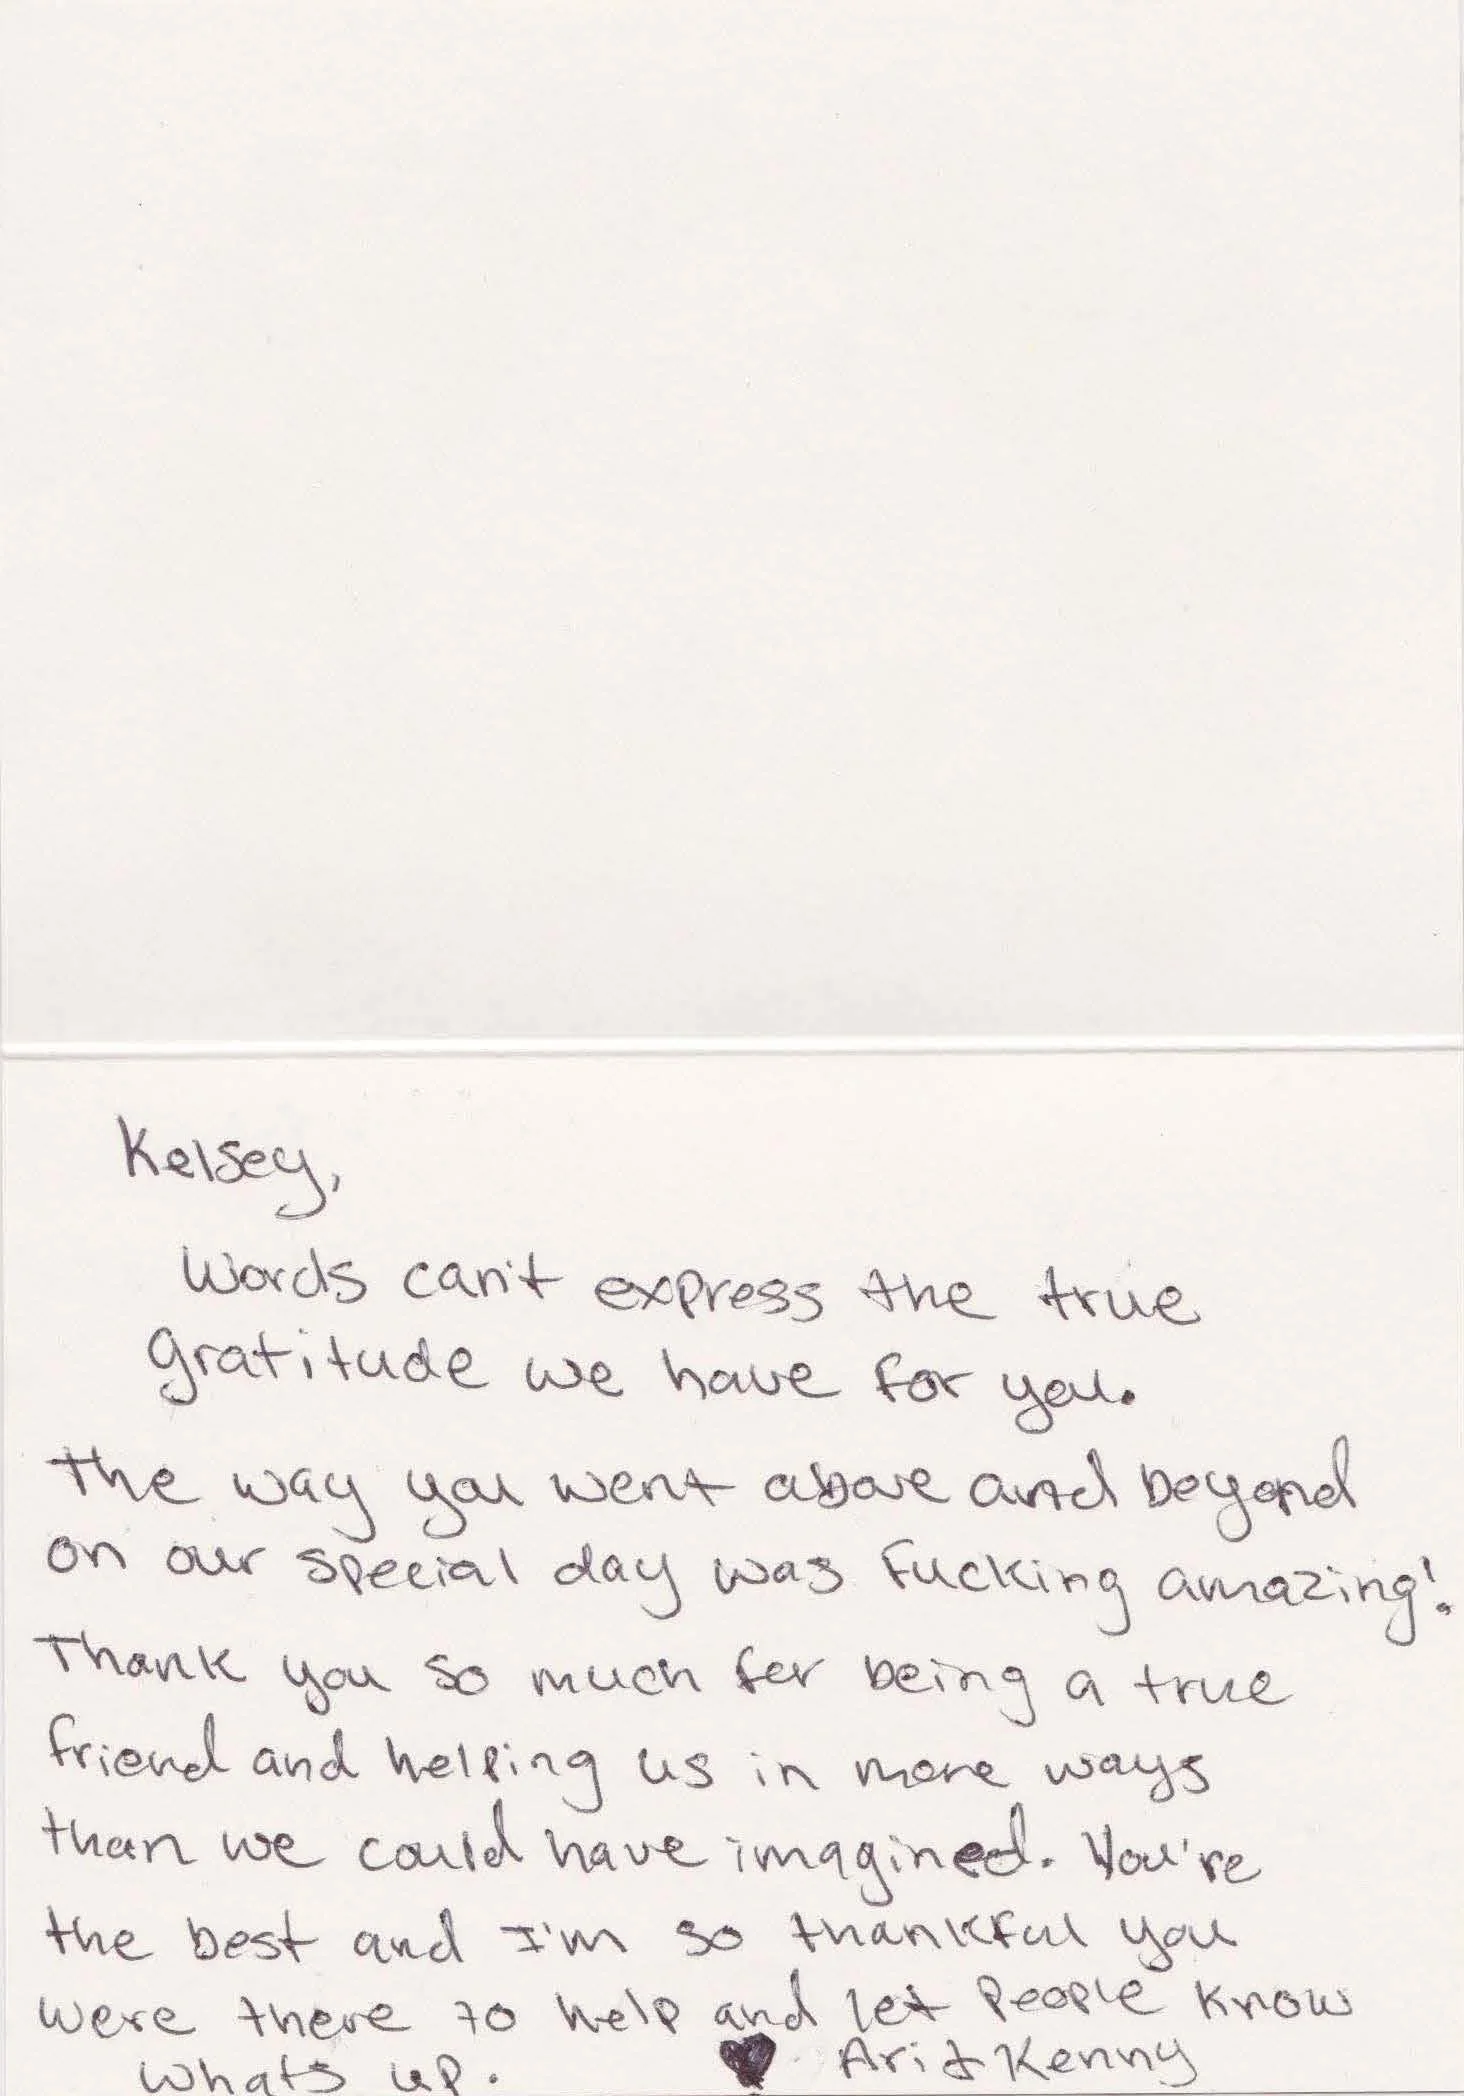 Kelsey,
Words can't express the true
gratitude we have for you.
The way you went above and beyond
on our special day was fucking amazing!
Thank you so much for being a true
friend and helping us in more ways
than we could have imagined. You're
the best and I'm so thankful you
were there to help and let people know
whats up. ♥ Ari & Kenny